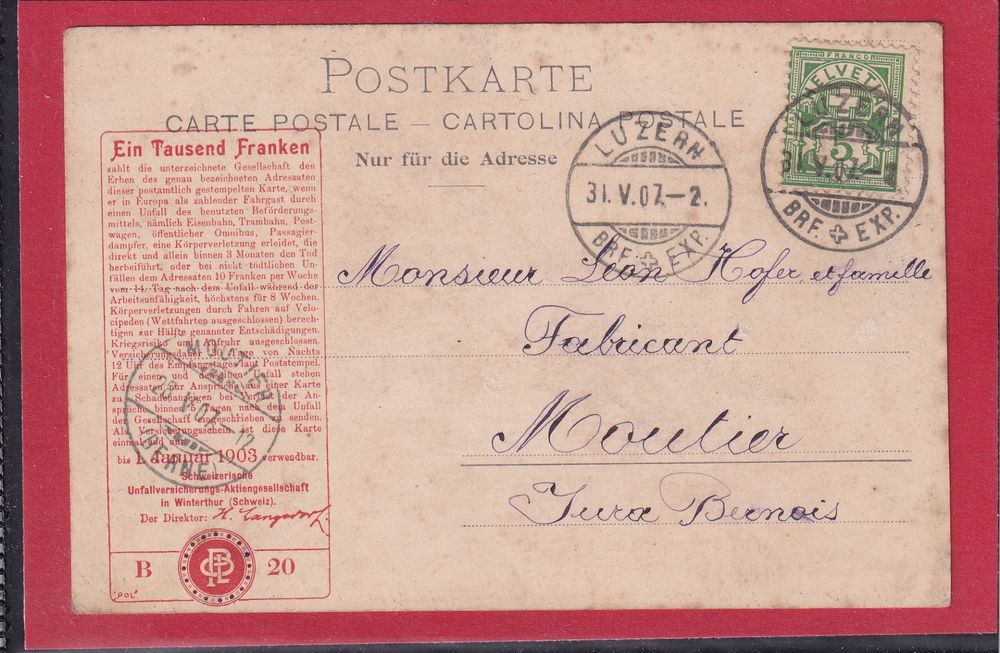 POSTKARTE
CARTE POSTALE — CARTOLINA POSTALE
Nur für die Adresse
FRANCO
HELVETIA
5
LUZERN
31.V.07.–2.
BRF. EXP.
LUZERN
31.V.07.–2
BRF. EXP.
Ein Tausend Franken
zahlt die unterzeichnete Gesellschaft den
Erben des genau bezeichneten Adressaten
dieser postamtlich gestempelten Karte, wenn
er in Europa als zahlender Fahrgast durch
einen Unfall des benutzten Beförderungs-
mittels, nämlich Eisenbahn, Trambahn, Post-
wagen, öffentlicher Omnibus, Passagier-
dampfer, eine Körperverletzung erleidet, die
direkt und allein binnen 3 Monaten den Tod
herbeiführt, oder bei nicht tödtlichen Un-
fällen dem Adressaten 10 Franken per Woche
vom 14. Tag nach dem Unfall während der
Arbeitsunfähigkeit, höchstens für 8 Wochen.
Körperverletzungen durch Fahren auf Velo-
cipeden (Wettfahrten ausgeschlossen) berech-
tigen zur Hälfte genannter Entschädigungen.
Kriegsrisiko und Aufruhr ausgeschlossen.
Versicherungsdauer von Nachts
12 Uhr des Empfangstages laut Poststempel.
Für einen und denselben Unfall stehen
Adressaten nur Ansprüche aus einer Karte
zu. Schadenanzeigen bei Verlust der An-
sprüche binnen Tagen nach dem Unfall
der Gesellschaft eingeschrieben zu senden.
Als Versicherungsschein ist diese Karte
einmal und nur
bis 1. Januar 1903 verwendbar.
Schweizerische
Unfallversicherungs-Aktiengesellschaft
in Winterthur (Schweiz).
Der Direktor: H. Langsdorf.
B 20
"POL"
MOUTIER
V.07.–12
(BERNE)
Monsieur Léon Hofer et famille
Fabricant
Moutier
Jura Bernois